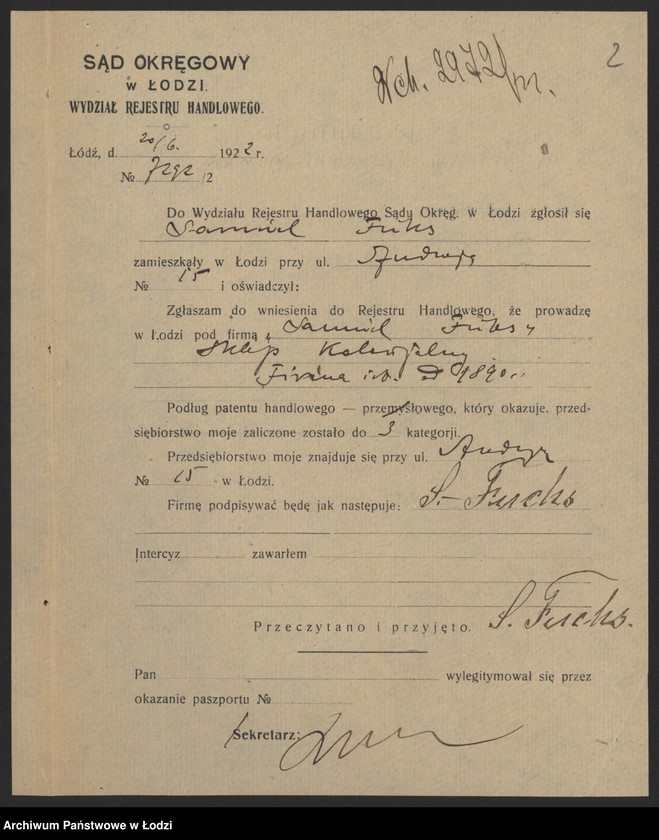 2
Nch. 2972/pr.
SĄD OKRĘGOWY
w ŁODZI.
WYDZIAŁ REJESTRU HANDLOWEGO.
Łódź, d. 20/6. 1922 r.
№ /2
Do Wydziału Rejestru Handlowego Sądu Okręg. w Łodzi zgłosił się
Samuel Fuks
zamieszkały w Łodzi przy ul. Andrzeja
№ 15 i oświadczył:
Zgłaszam do wniesienia do Rejestru Handlowego, że prowadzę
w Łodzi pod firmą „Samuel Fuks"
Sklep Kolonjalny
Firma 1890
Podług patentu handlowego — przemysłowego, który okazuje, przed-
siębiorstwo moje zaliczone zostało do 3 kategorji.
Przedsiębiorstwo moje znajduje się przy ul. Andrz
№ 15 w Łodzi.
Firmę podpisywać będę jak następuje: S. Fuchs
Intercyz zawarłem
Przeczytano i przyjęto. S. Fuchs.
Pan wylegitymował się przez
okazanie paszportu №
Sekretarz:
Archiwum Państwowe w Łodzi